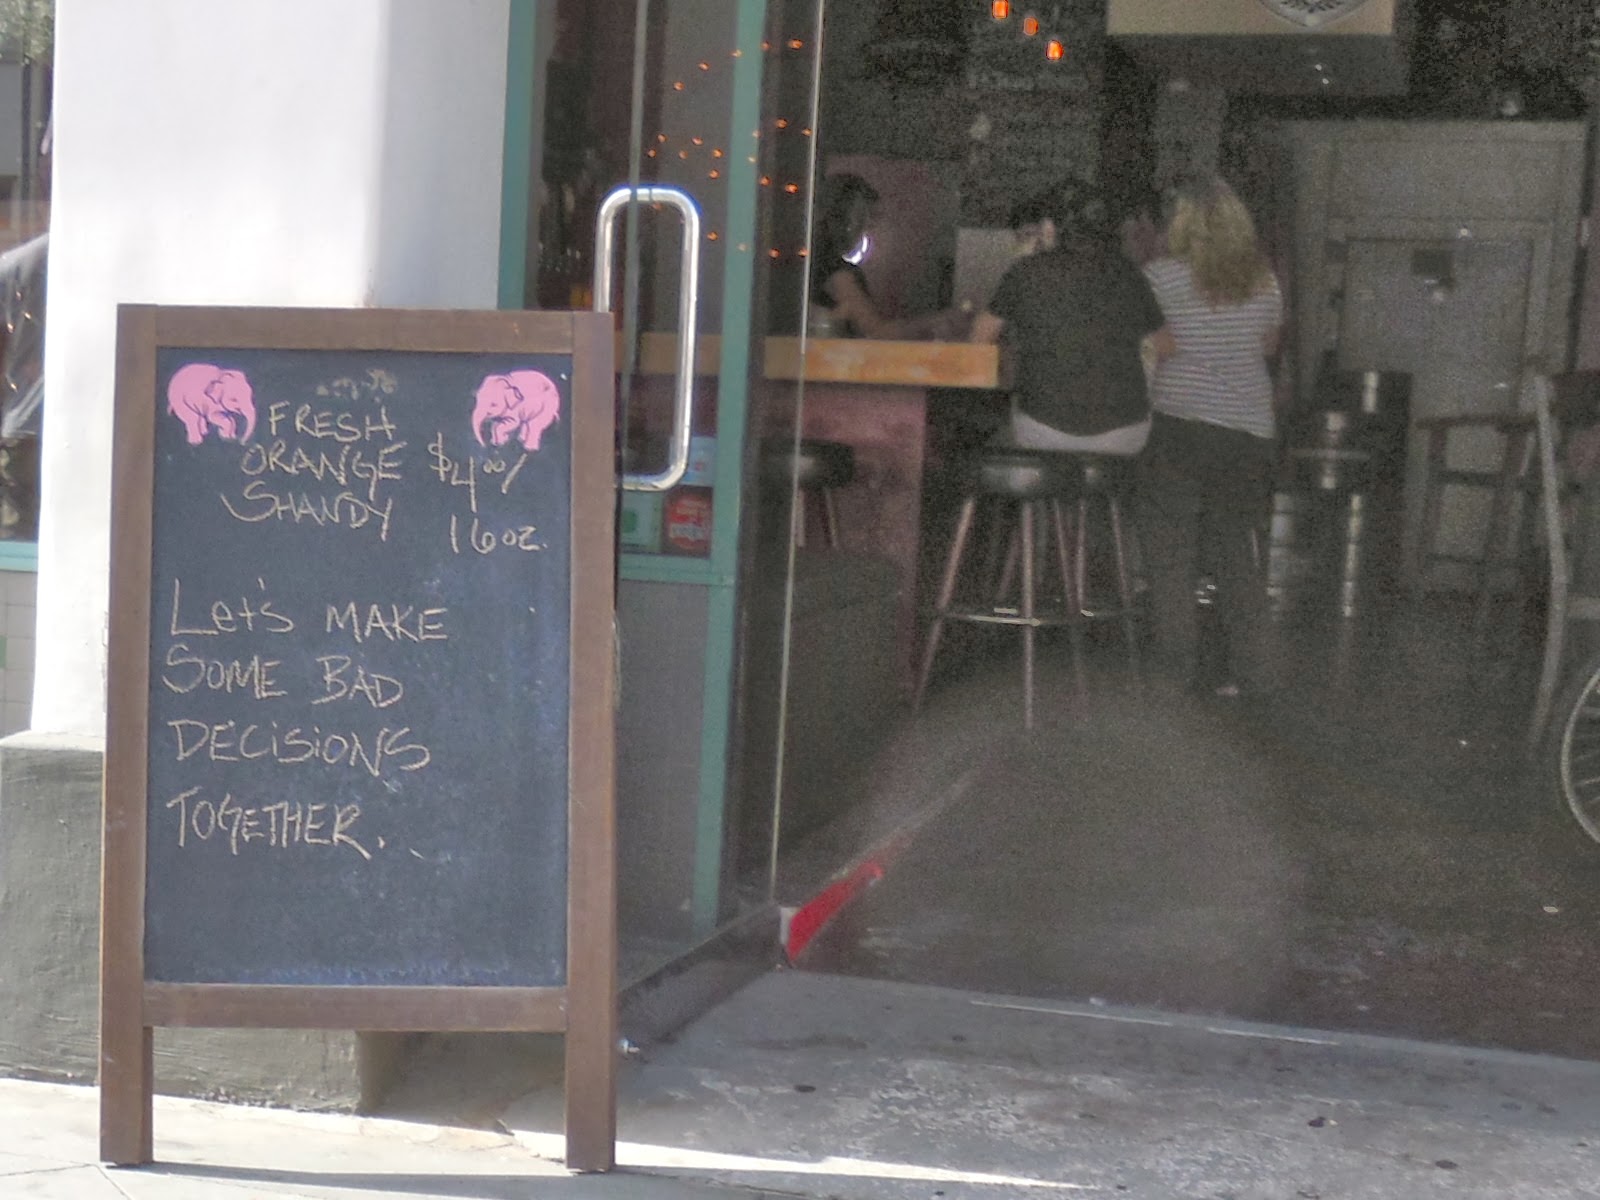 FRESH
ORANGE $4.00/
SHANDY 16oz.
Let's MAKE
SOME BAD
DECISIONS
TOGETHER.